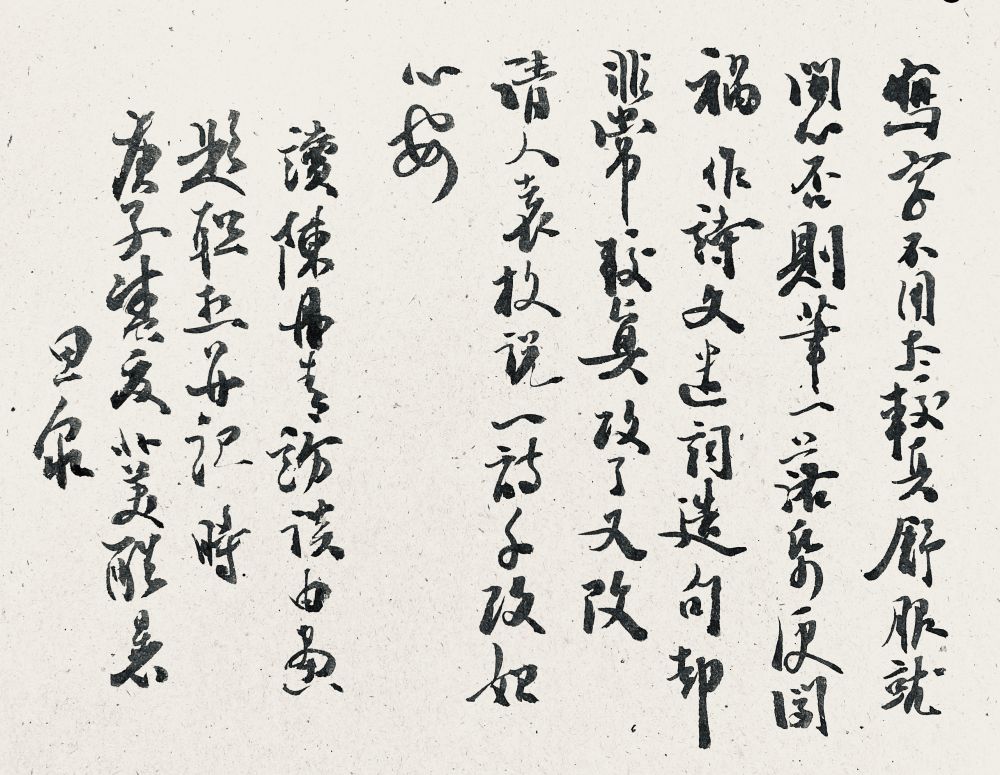 寫字不用太較真舒服就
開心否則筆一落紙便闖
禍作詩文遣詞造句却
非常較真改了又改
請人袁枚說一詩千改始
心安
讀陳丹青訪談由畫
題起興并記時
庚子盛夏北美酷暑
思泉